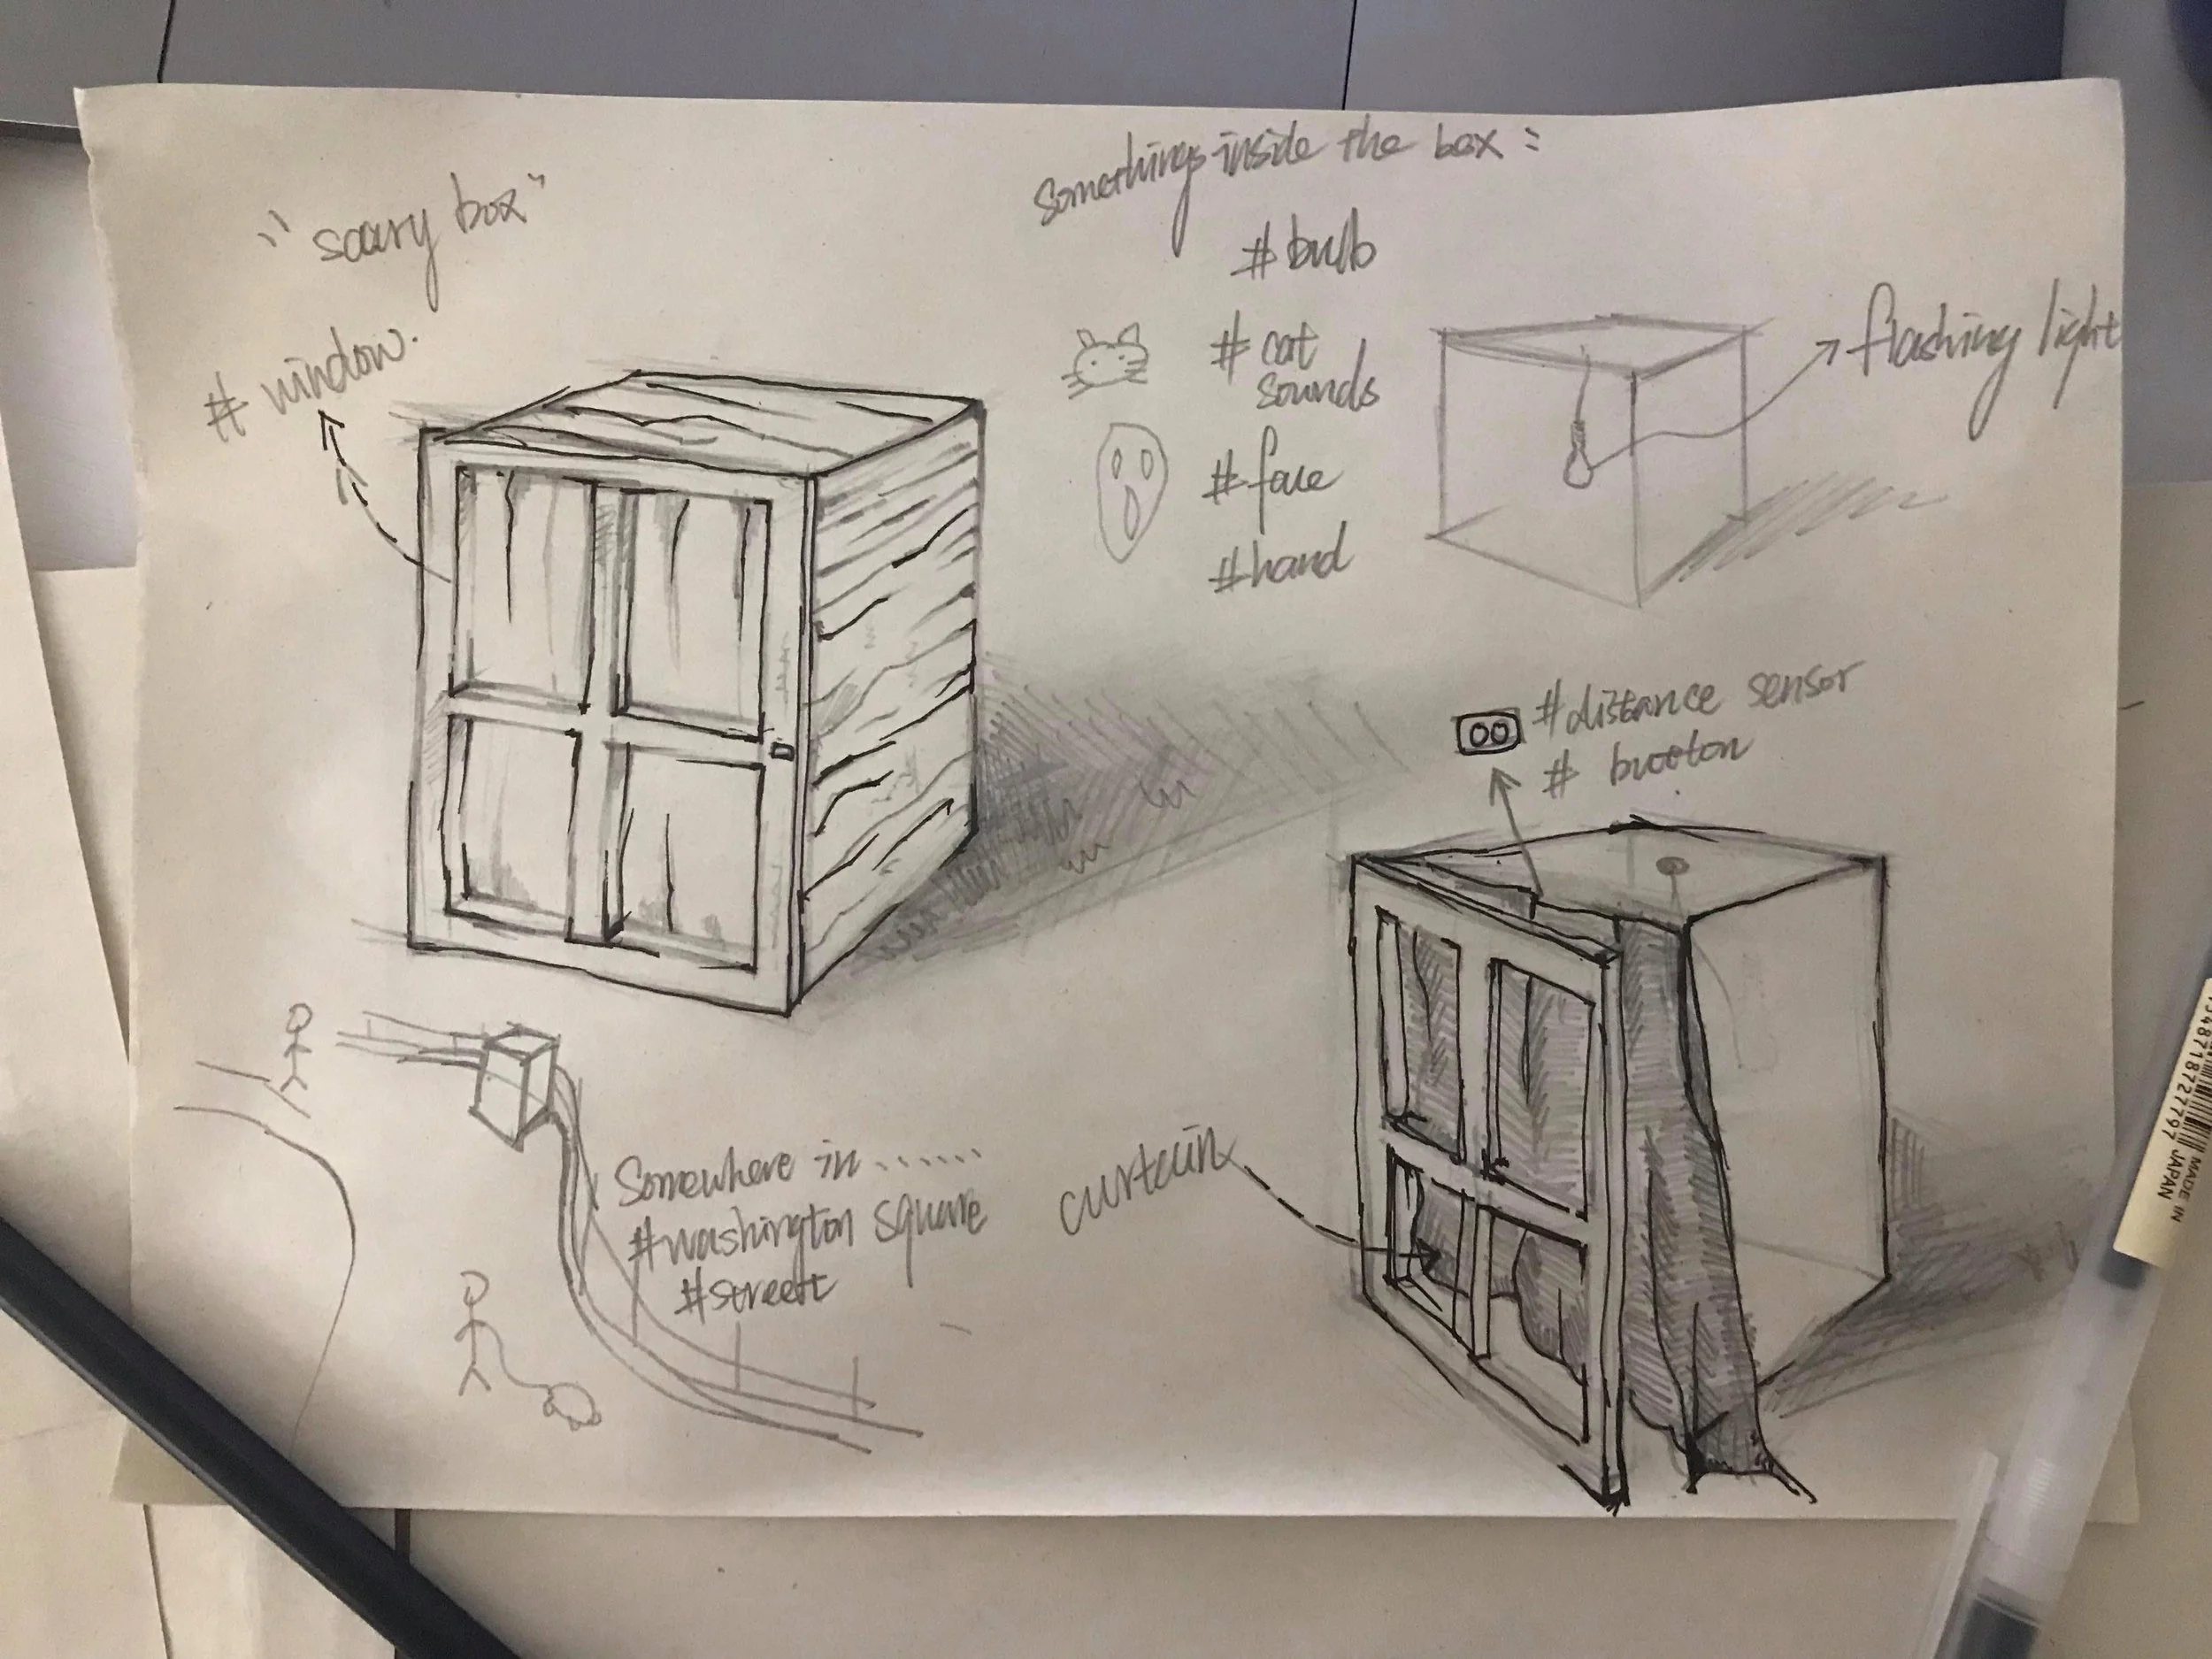 "scary box"
# window.
Somethings inside the box :
# bulb
# cat
sounds
# face
# hand
flashing light
# distance sensor
# button
curtain
Somewhere in ......
# washington square
# street
MADE IN
JAPAN